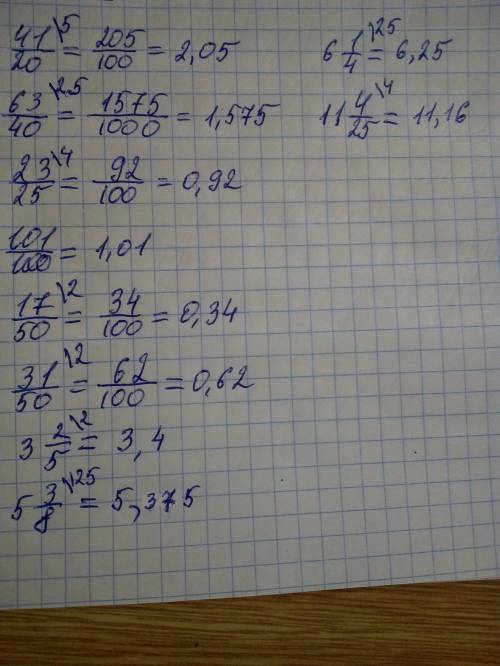 41/20 \5 = 205/100 = 2,05
63/40 \25 = 1575/1000 = 1,575
23/25 \4 = 92/100 = 0,92
101/100 = 1,01
17/50 \2 = 34/100 = 0,34
31/50 \2 = 62/100 = 0,62
3 2/5 \2 = 3,4
5 3/8 \125 = 5,375
6 1/4 \25 = 6,25
11 4/25 \4 = 11,16